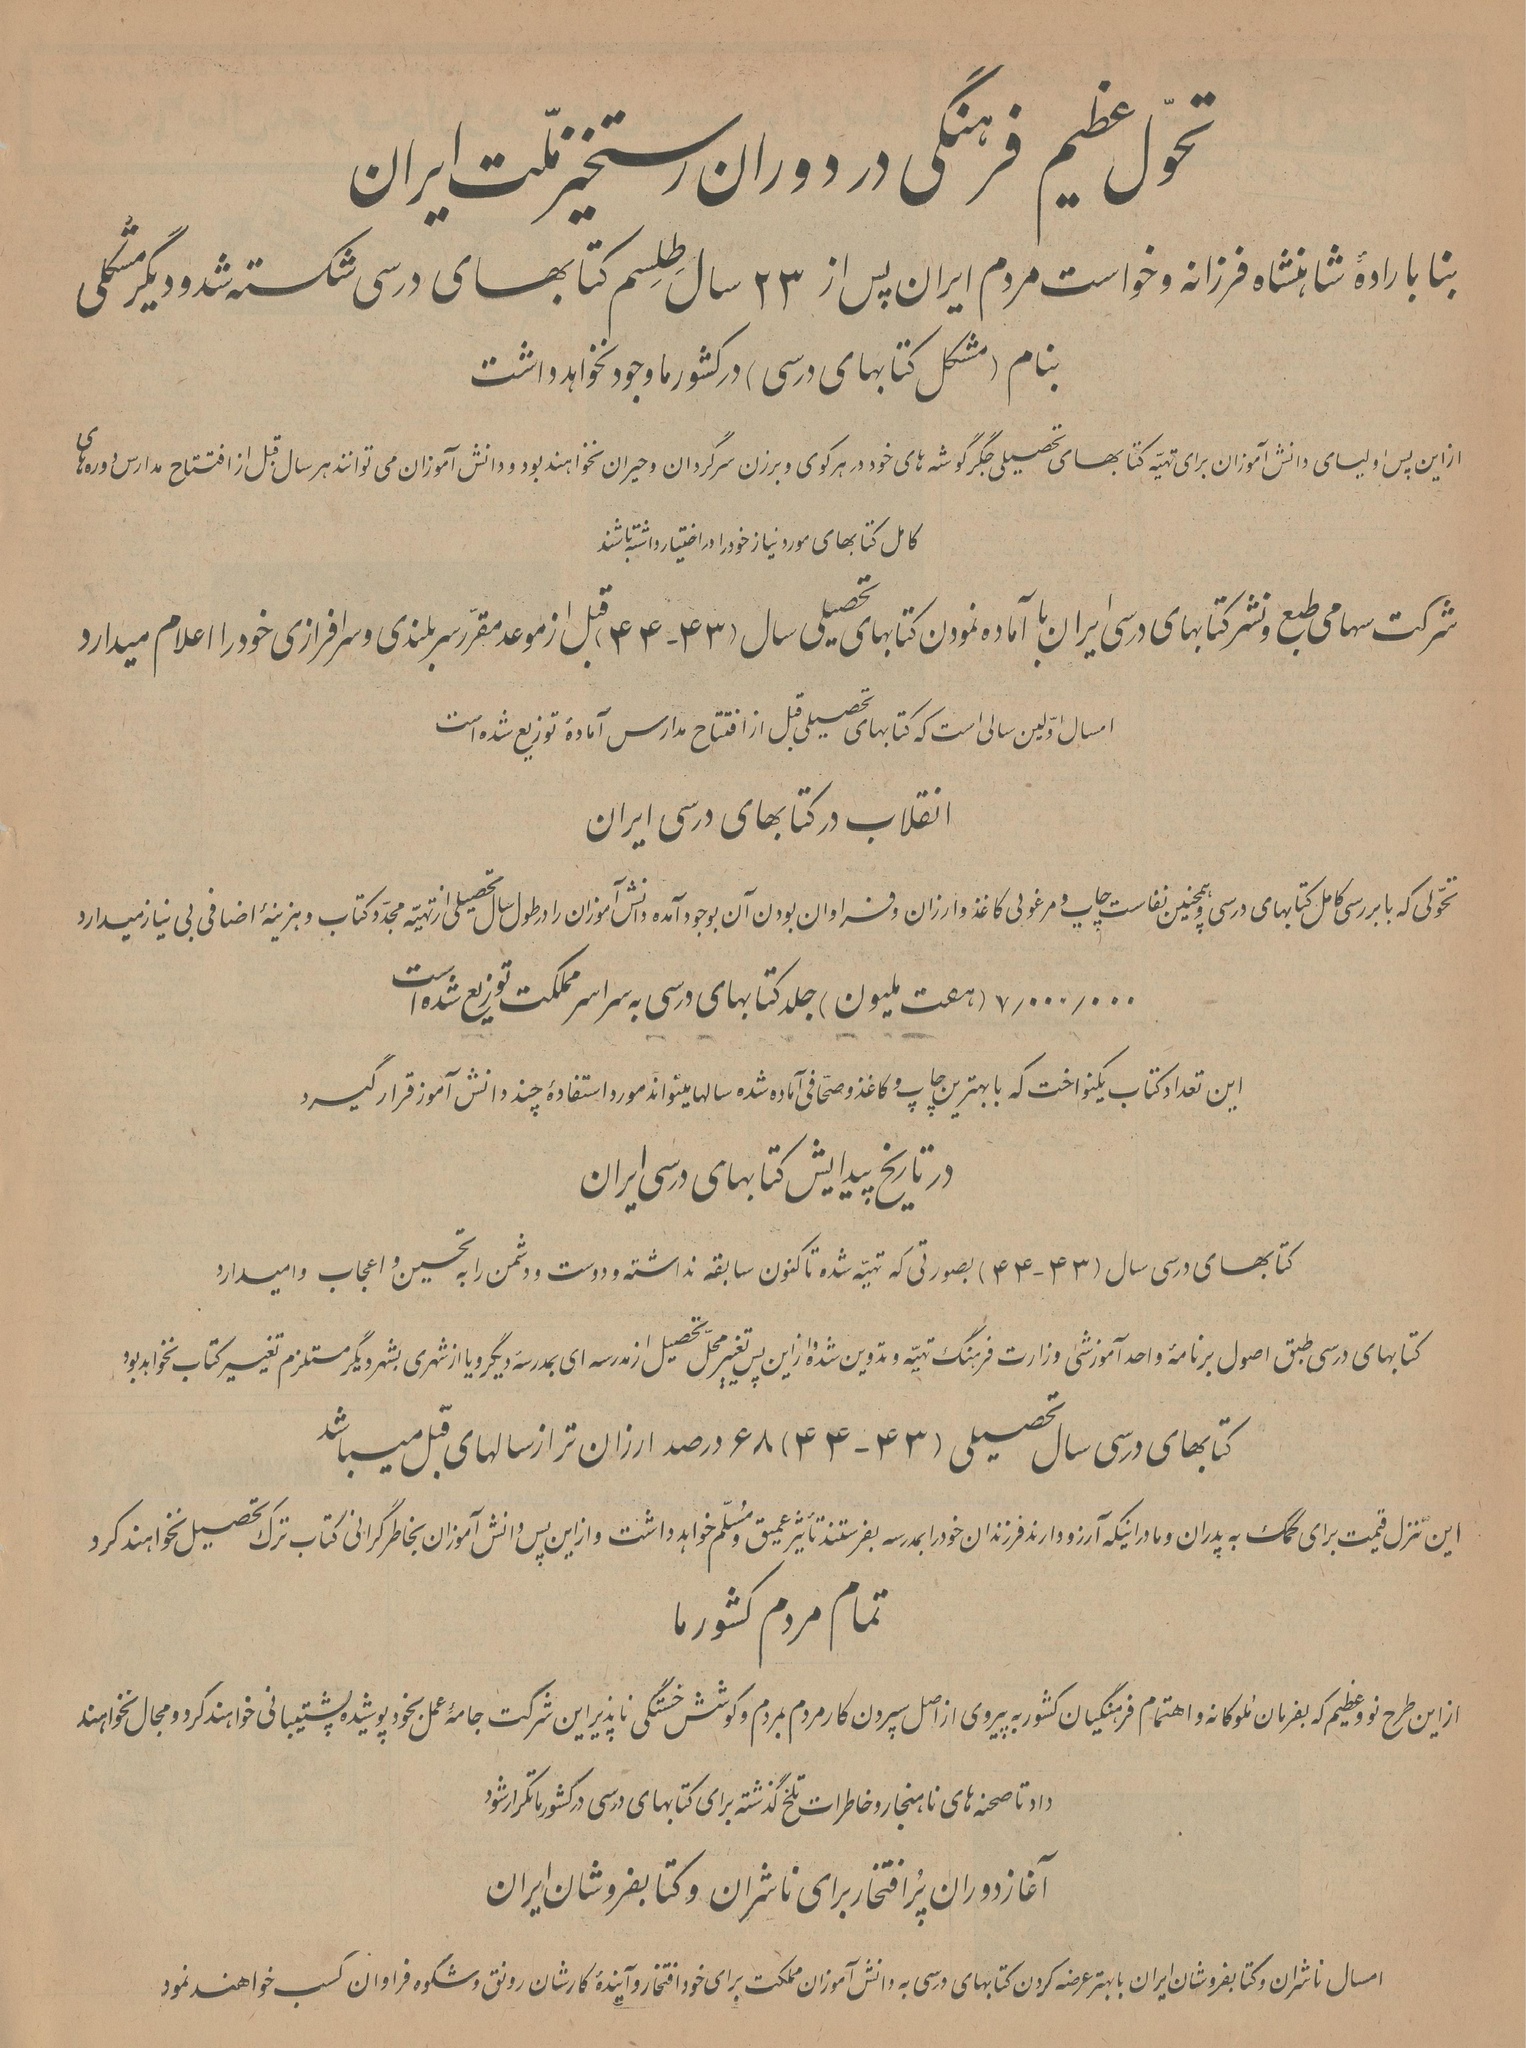 تحوّل عظیم فرهنگی در دوران رستخیز ملّت ایران
بنا باراده شاهنشاه فرزانه و خواست مردم ایران پس از ۲۳ سال طلِسم کتابهای درسی شکسته شد و دیگر مشکلی
بنام (مشکل کتابهای درسی) در کشور ما وجود نخواهد داشت
از این پس اولیای دانش آموزان برای تهیّه کتابهای تحصیلی جگرگوشه های خود در هر کوی و برزن سرگردان و حیران نخواهند بود و دانش آموزان می توانند هر سال قبل از افتتاح مدارس دوره های
کامل کتابهای مورد نیاز خود را در اختیار داشته باشند
شرکت سهامی طبع و نشر کتابهای درسی ایران با آماده نمودن کتابهای تحصیلی سال (۴۳-۴۴) قبل از موعد مقرّر سربلندی و سرافرازی خود را اعلام میدارد
امسال اوّلین سالی است که کتابهای تحصیلی قبل از افتتاح مدارس آمادهٔ توزیع شده است
انقلاب در کتابهای درسی ایران
تحوّلی که با بررسی کامل کتابهای درسی و همچنین نفاست چاپ و مرغوبی کاغذ و ارزان و فراوان بودن آن بوجود آمده دانش آموزان را در طول سال تحصیلی از تهیّه مجدّد کتاب و هزینهٔ اضافی بی نیاز میدارد
۷/۰۰۰/۰۰۰ (هفت ملیون) جلد کتابهای درسی به سراسر مملکت توزیع شده است
این تعداد کتاب یکنواخت که با بهترین چاپ و کاغذ و صحّافی آماده شده سالها میتواند مورد استفادهٔ چند دانش آموز قرار گیرد
در تاریخ پیدایش کتابهای درسی ایران
کتابهای درسی سال (۴۳-۴۴) بصورتی که تهیّه شده تاکنون سابقه نداشته و دوست و دشمن را به تحسین و اعجاب وامیدارد
کتابهای درسی طبق اصول برنامهٔ واحد آموزشی وزارت فرهنگ تهیّه و تدوین شده و از این پس تغییر محلّ تحصیل از مدرسه ای بمدرسهٔ دیگر و یا از شهری بشهر دیگر مستلزم تغییر کتاب نخواهد بود
کتابهای درسی سال تحصیلی (۴۳-۴۴) ۶۸ درصد ارزان تر از سالهای قبل میباشد
این تنزل قیمت برای کمک به پدران و مادرانیکه آرزو دارند فرزندان خود را بمدرسه بفرستند تأثیر عمیق و مُسلّم خواهد داشت و از این پس دانش آموزان بخاطر گرانی کتاب ترک تحصیل نخواهند کرد
تمام مردم کشور ما
از این طرح نو و عظیم که بفرمان ملوکانه و اهتمام فرهنگیان کشور به پیروی از اصل سپردن کار مردم بمردم و کوشش خستگی ناپذیر این شرکت جامهٔ عمل بخود پوشیده پشتیبانی خواهند کرد و مجال نخواهند
داد تا صحنه های ناهنجار و خاطرات تلخ گذشته برای کتابهای درسی در کشور ما تکرار شود
آغاز دوران پُرافتخار برای ناشران و کتابفروشان ایران
امسال ناشران و کتابفروشان ایران با بهتر عرضه کردن کتابهای درسی به دانش آموزان مملکت برای خود افتخار و آیندهٔ کارشان رونق و شکوه فراوان کسب خواهند نمود